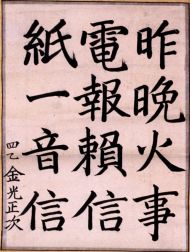 昨晚火事
電報賴信
紙一音信
四乙 金光正次